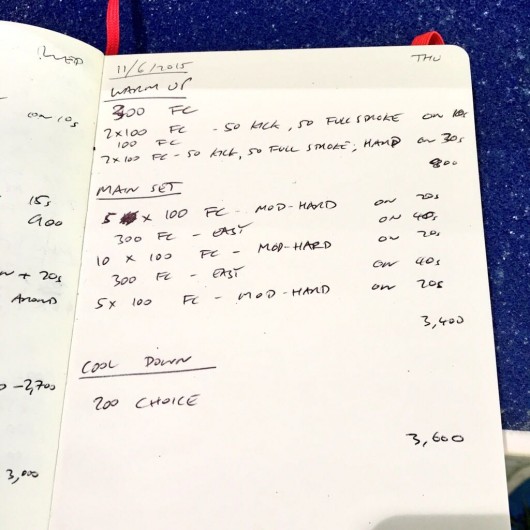 WED
on 10s
15s
900
+ 20s
-2,700
3,000
11/6/2015
THU
WARM UP
300 FC
2x100 FC - 50 KICK, 50 FULL STROKE on 10s
100 FC
2x100 FC - 50 KICK, 50 FULL STROKE; HARD on 30s
800
MAIN SET
5 x 100 FC - MOD-HARD on 20s
300 FC - EASY on 40s
10 x 100 FC - MOD-HARD on 20s
300 FC - EASY on 40s
5x 100 FC - MOD-HARD on 20s
3,400
COOL DOWN
200 CHOICE
3,600